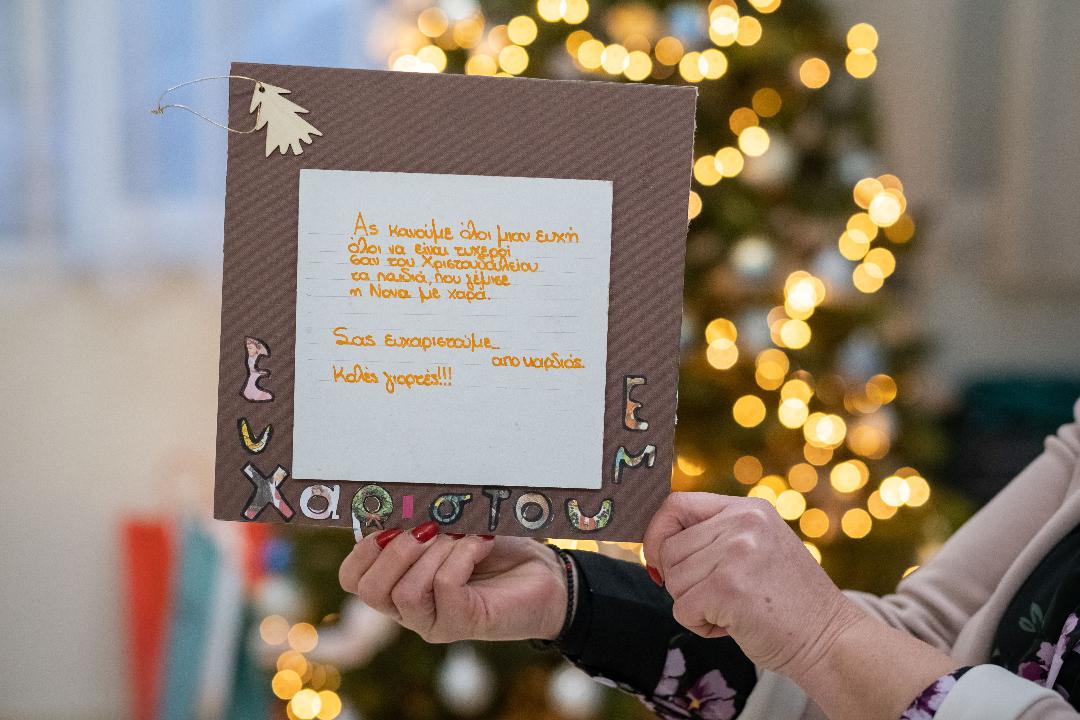 Ας κανούμε όλοι μιαν ευχή
όλοι να είναι τυχεροί
σαν του Χριστουδουλείου
τα παιδιά, που γέμισε
η Νονα με χαρά.
Σας ευχαριστούμε
απο καρδιάς
Καλές γιορτές!!!
Ευχαριστουμε